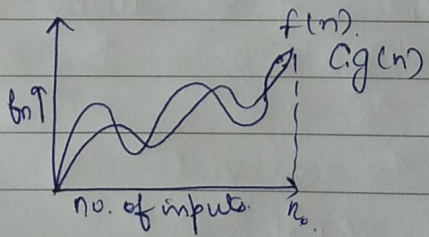 f(n).
C1g(n)
fn↑
no. of inputs.
n₀